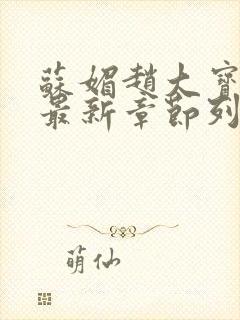 蘇媚趙大寶
最新章節列
萌仙